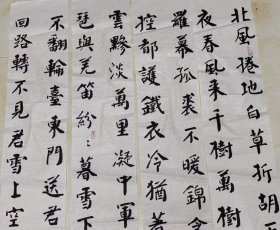 北風捲地白草折胡
夜春風来千樹萬樹
羅幕狐裘不暖錦
控都護鐵衣冷猶著
雲黲淡萬里凝中軍
琶與羌笛紛々暮雪下
不翻輪臺東門送君
回路轉不見君雪上空